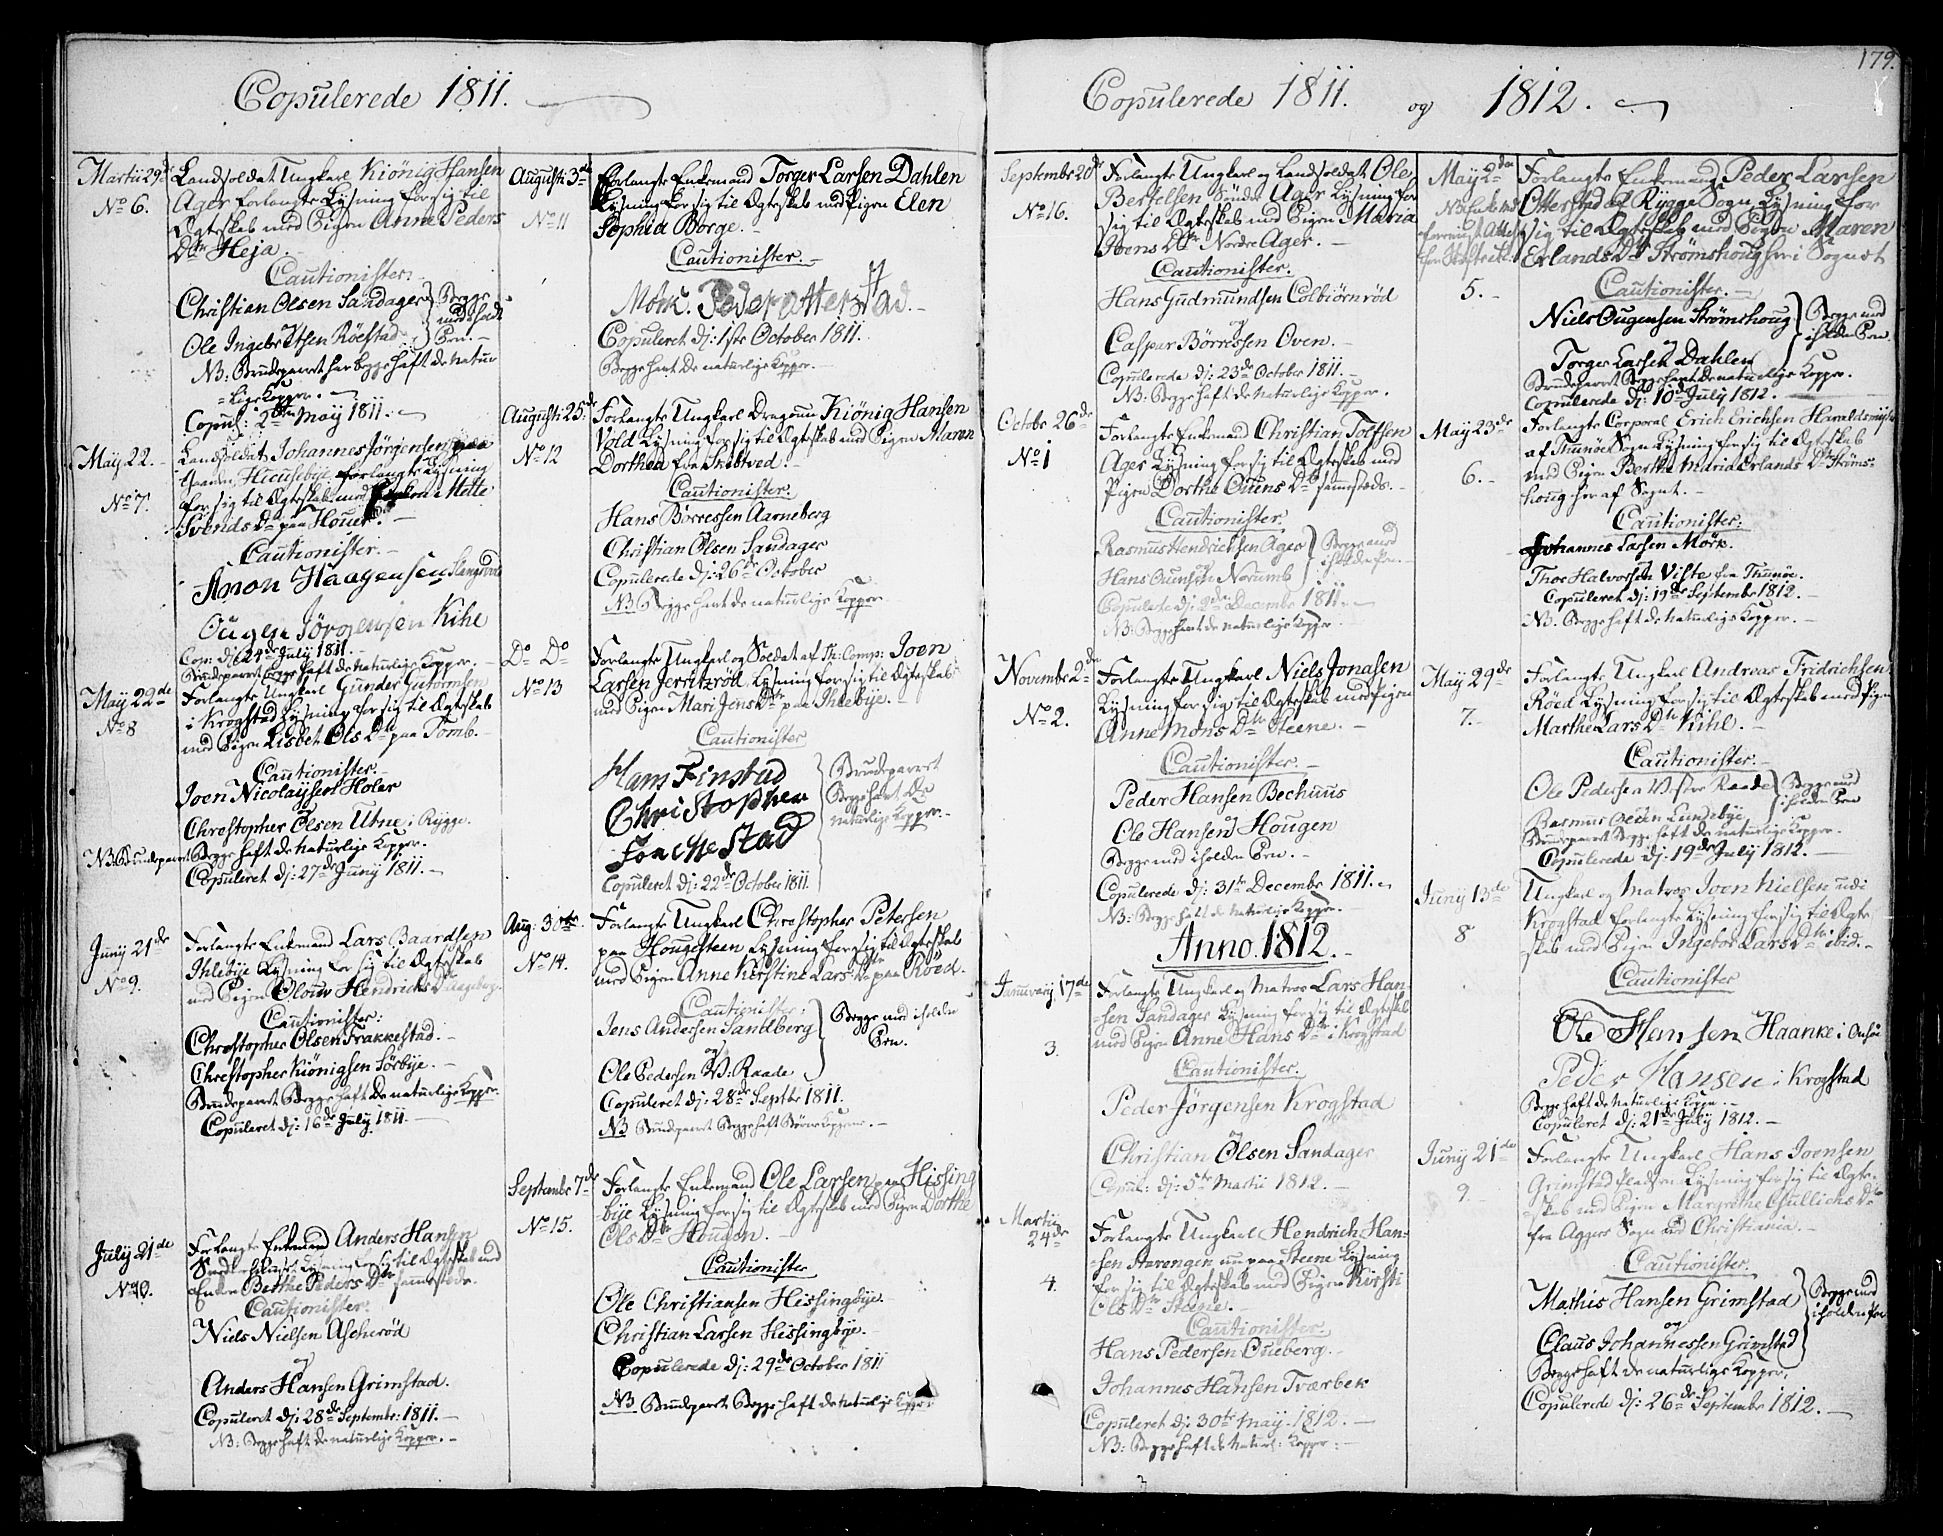 Copulerede 1811.
Martii 29de
No 6.
Landsoldat Ungkarl Kiönig Hansen
Ager forlangte Lysning for sig til
Ægteskab med Pigen Anne Peders
Dtr Heja.
Cautionister.
Christian Olsen Sandager
Ole Ingebrethsen Röestad
Begge
med iholdt
Pen.
NB: Brudeparret har begge haft de natur
=lige Kopper.
Copul: 2den May 1811.
May 22.
No 7.
Landsoldat Johannes Jörgensen paa
Gaarden Huusebye forlangte Lysning
for sig til Ægteskab med Mette
Svends Dtr paa Houer.
Cautionister.
Anon Haagensen
Ougen Jörgensen Kihl
Cop: dj 24de July 1811.
Brudeparret Begge haft de Naturlige Kopper.
May 22de
No 8
Forlangte Ungkarl Gunder Gutormsen
i Krogstad Lysning for sig til Ægteskab
med Pigen Lisbet Ols Dtr paa Tomb.
Cautionister.
Joen Nicolaysen Holer
og
Christopher Olsen Utne i Rygge.
NB: Brudeparret Begge haft de Naturlige Kopper.
Copuleret dj: 27de Juny 1811.
Juny 21de
No 9.
Forlangte Enkemand Lars Baardsen
Ihlebye Lysning for sig til Ægteskab
med Pigen Olour Hendrichs Dtr
Cautionister:
Christopher Olsen Frakkestad.
Christopher Kiönigsen Sörbye.
Brudeparret Begge haft De naturlige Kopper.
Copuleret dj: 16de July 1811.
July 21de
No 10.
Forlangte Enkemand Anders Hansen
Lysning for sig til Ægteskab med
Enken Berthe Peders Dtr sammesteds.
Cautionister.
Niels Nielsen Ascheröd
og
Anders Hansen Grimstad.
Copuleret dj: 28de Septembr: 1811.
NB: Begge haft de naturlige Kopper.
Augusti 3de
No 11
Forlangte Enkemand Torger Larsen Dahlen
Lysning for sig til Ægteskab med Pigen Elen
Sophia Borge.
Cautionister.
Mörk. Peder otterstad.
Copuleret dj: 1ste October 1811.
Begge havt De naturlige Kopper.
Augusti 25de
No 12
Forlangte Ungkarl Dragoun Kiönig Hansen
Vold Lysning for sig til Ægteskab med Pigen Maren
Dorthea fra Skibtved.
Cautionister.
Hans Börresen Aarneberg
og
Christian Olsen Sandager
Copulerede dj: 26de October
NB Begge havt de naturlige Kopper.
Do Do
No 13
Forlangte Ungkarl og Soldat af Th: Comp: Joen
Larsen Jerritzröd Lysning for sig til Ægteskab
med Pigen Mari Jens Dtr paa Ihlebye.
Cautionister
Hans Finstad
Christopher
Fracke Stad
Brudeparret
Begge havt De
naturlige Kopper.
Copuleret dj: 22de October 1811.
Aug: 30te
No 14.
Forlangte Ungkarl Christopher Petersen
paa Hougsteen Lysning for sig til Ægteskab
med Pigen Anne Kirstine Lars Dtr paa Röed.
Cautionister:
Jens Andersen Sandberg
og
Ole Pedersen W: Raade
Begge med iholden
Pen.
Copuleret dj: 28de Septbr 1811.
NB Brudeparret Begge haft Börne Kopperne.
Septembr 7de
No 15.
Forlangte Enkemand Ole Larsen paa Hissing
bye Lysning for sig til Ægteskab med Pigen Dorthe
Ols Dtr Hougen.
Cautionister
Ole Christiansen Hissingbye.
Christian Larsen Hissingbye.
Copulerede dj: 29de October 1811
NB Brudeparret Begge haft de Naturlige Kopper
Copulerede 1811. og 1812.
179.
Septembr 20de
No 16.
Forlangte Ungkarl og Landsoldat Ole
Bertelsen Söndre Ager Lysning for
sig til Ægteskab med Pigen Maria
Ibens Dtr Nordre Ager.
Cautionister.
Hans Gudmundsen Colbiörnröd
og
Caspar Börresen Oven.
Copulerede dj: 23de October 1811.
NB: Begge haft de Naturlige Kopper.
Octobr 26de
No 1
Forlangte Enkemand Christian Tolfsen
Ager Lysning for sig til Ægteskab med
Pigen Dorthe Ouens Dtr sammesteds.
Cautionister
Rasmus Hendrichsen Ager
og
Hans Ouensen Norumb
Begge med
iholden Pen.
Copulerte dj: 2de Decembr 1811.
NB: Begge havt de naturlige Kopper.
Novembr 2de
No 2.
Forlangte Ungkarl Niels Jonasen
Lysning for sig til Ægteskab med Pigen
Anne Mons Dtr Steene.
Cautionister.
Peder Hansen Bechuus
og
Ole Hansen Hougen
Begge med iholden Pen.
Copulerede dj: 31te Decembr 1811.
NB: Begge haft de Naturlige Kopper.
Anno 1812.
Januarij 17de
3.
Forlangte Ungkarl og Matros Lars Han-
=sen Sandager Lysning for sig til Ægteskab
med Pigen Anne Hans Dtr i Krogstad
Cautionister.
Peder Jörgensen Krogstad
og
Christian Olsen Sandager
Copul: dj: 5te Martii 1812.
Martii
24de
4.
Forlangte Ungkarl Hendrich Han-
=sen Aarengen nu paa Steene Lysning
for sig til Ægteskab med Pigen Kirsti
Ols Dtr Steene.
Cautionister
Hans Pedersen Oueberg.
og
Johannes Hansen Tværbek
Copuleret dj: 30te May 1812.
NB: Begge haft de Naturl: Kopper.
May 2den
5.
Forlangte Enkemand Peder Larsen
Otterstad af Rygge Sogn Lysning for
sig til Ægteskab med Pigen Maren
Erlands Dtr Strömshoug her i Sognet
Cautionister.
Niels Ougensen Strömshoug
og
Torger Larsen Dahlen
Begge med
iholden Pen.
Brudeparret Begge havt De naturlige Kopper.
Copulerede dj: 10de July 1812.
May 23de
6.
Forlangte Corporal Erich Erichsen
af Thunöe Sogn Lysning for sig til Ægteskab
med Pigen Berthe Maria Erlands Dtr Ströms-
houg her af Sognet.
Cautionister.
Johannes Larsen Mörk.
og
Thor Halvorsen Viste fra Thunöe.
Copuleret dj: 19de Septembr 1812.
NB. Begge haft de Naturlige Kopper.
May 29de
7.
Forlangte Ungkarl Andreas Fridrichsen
Röed Lysning for sig til Ægteskab med Pigen
Marthe Lars Dtr Kihl.
Cautionister.
Ole Pedersen Vestre Raade
og
Rasmus Olsen Lundebye
Begge med
iholden Pen
Brudeparret Begge haft de Naturlige Kopper.
Copulerede dj: 19de July 1812.
Juny 13de
8
Ungkarl og Matros Joen Nielsen udi
Krogstad forlangte Lysning for sig til Ægte-
skab med Pigen Ingebor Lars Dtr ibid.
Cautionister
Ole Hansen Haanke i Onsöe
Peder Hansen i Krogstad
Begge haft de Naturlige Kopper.
Copuleret dj: 21de July 1812.
Juny 21de
9.
Forlangte Ungkarl Hans Joensen
Grimstad Pladsen Lysning for sig til Ægte-
skab med Pigen Margrethe Gullichs Dtr
fra Aggers Sogn ved Christiania.
Cautionister.
Mathis Hansen Grimstad
og
Claus Johannessen Grimstad
Begge med
iholden Pen
Begge haft de naturlige Kopper.
Copulerede dj: 26de Septembr 1812.